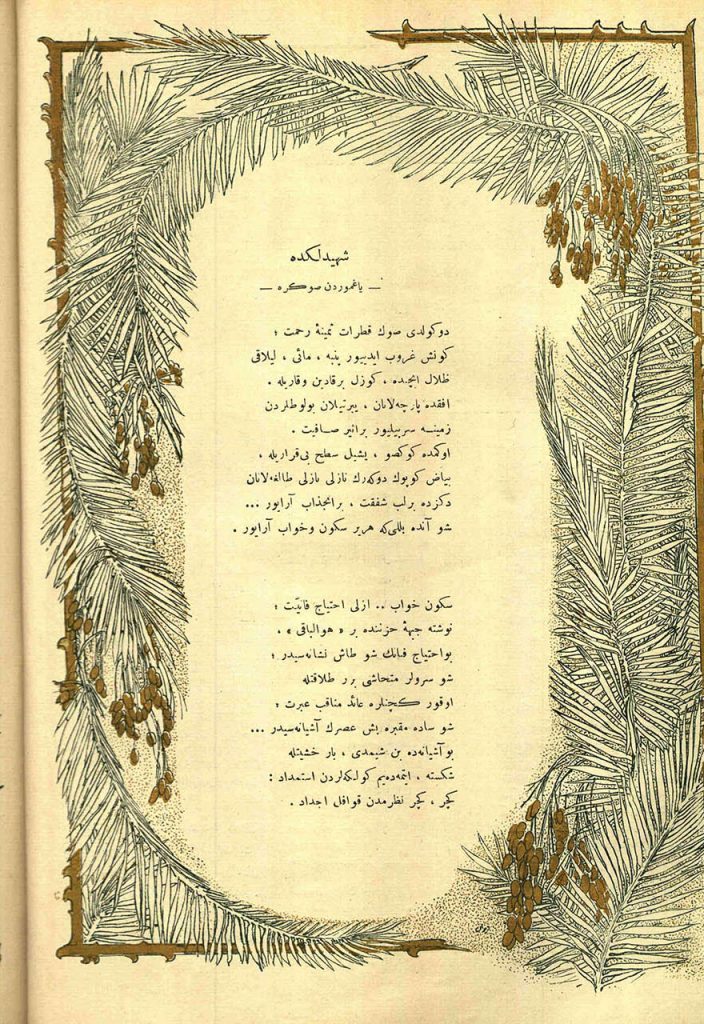 شهیدلكده
— یاغموردن صوكره —
دوكولدی صوك قطرات ثمینهٔ رحمت ؛
كونش غروب ایدییور پنبه ، مائی ، لیلاقی
ظلال ایچنده ، كوزل برقادین وقاریله .
افقده پارچه‌لانان ، ییرتیلان بولوطلردن
زمینه سرپیلیور برابر صافیت .
اوكمده كوكصو ، یشیل سطح بی‌قراریله ،
بیاض كوپوك دوكه‌رك نازلی نازلی طالغه‌لانان
دكزده برلب شفقت ، برانجذاب آرایور ...
شو آنده بللی‌كه هریر سكون وخواب آرایور .
سكون خواب .. ازلی احتیاج فانیّت ؛
نوشته جبههٔ حزننده بر « هوالباقی » ،
بواحتیاج فنانك شو طاش نشانه‌سیدر ؛
شو سرولر متحاشی برر طلاقتله
اوقور كچنلره عائد مناقب عبرت ؛
شو ساده مقبره بش عصرك آشیانه‌سیدر ...
بوآشیانه‌ده بن شیمدی ، بار خشیتله
شكسته ، ایتمه‌ده‌یم كولكه‌لردن استمداد :
كچر ، كچر نظرمدن قوافل اجداد .